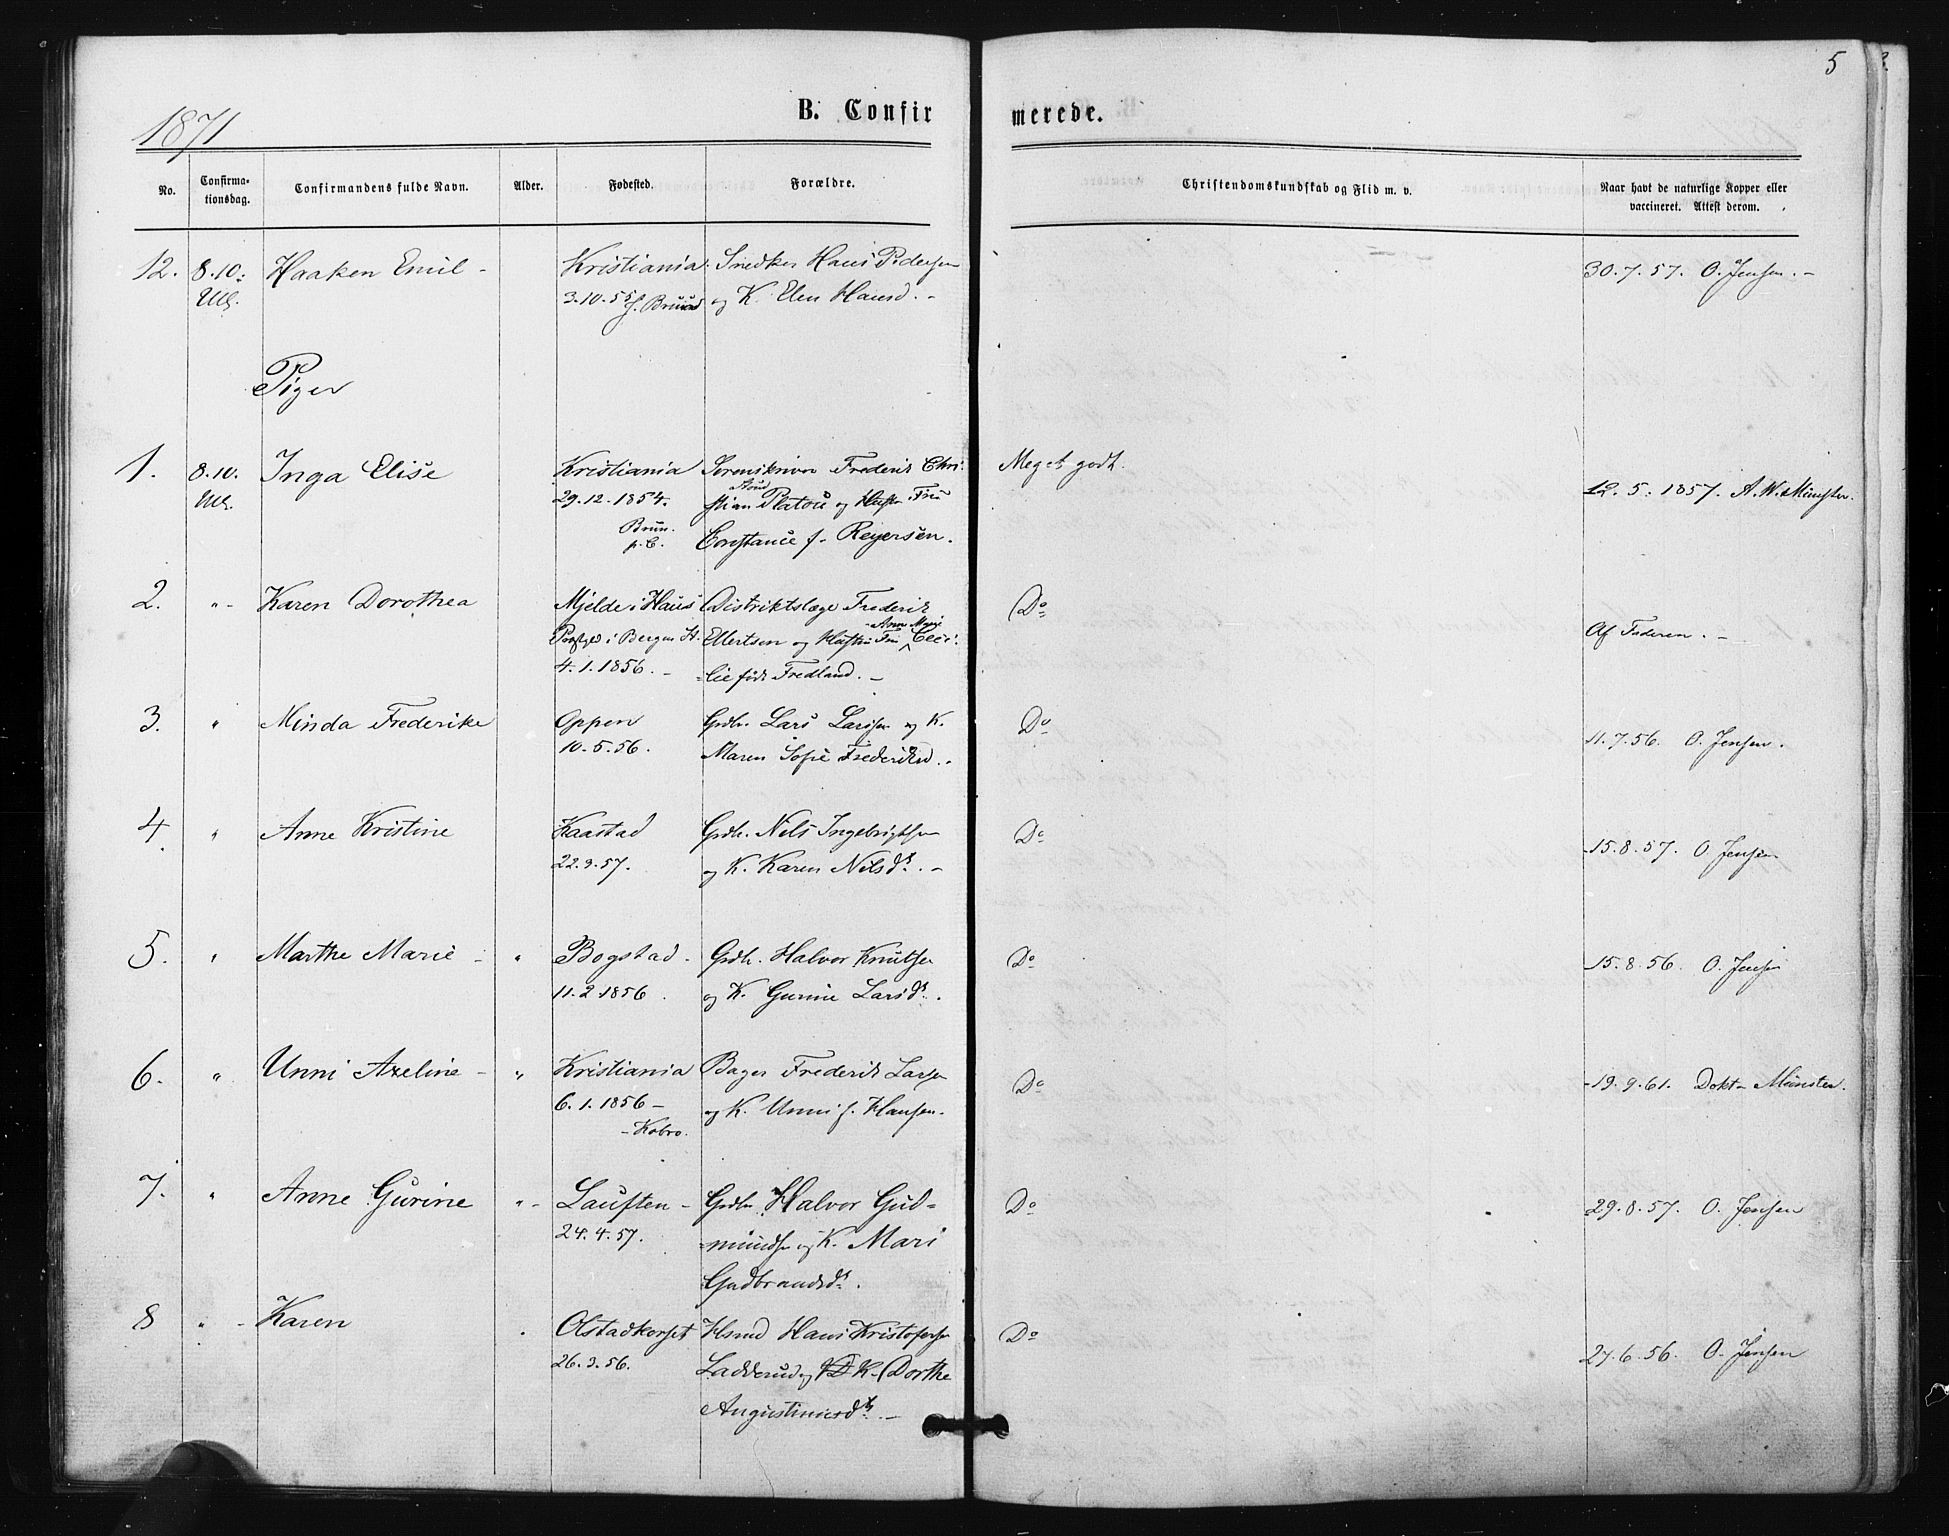 5
1871
B. Confirmerede.
No.
Confirmationsdag.
Confirmandens fulde Navn.
Alder.
Fødested.
Forældre.
Christendomskundskab og Flid m. v.
Naar havt de naturlige Kopper eller
vaccineret. Attest derom.
12. 8.10. Haaken Emil - Kristiania Snedker Hans Pedersen 30.7.57. O. Jensen. -
Ull. 3.10.55 og K. Elen Hansd. -
Piger
1. 8.10. Inga Elise Kristiania Sorenskriver Frederik Chri- Meget godt. 12.5.1857. A. W. Münster.
Ull. 29.12.1854. stian Stoud Platou og Hustru Fru
Brun. Constance f. Reyersen.
p. C.
2. " - Karen Dorothea Mjelde i Haus Distriktslæge Frederik Do Af Faderen. -
i Bergens St. Ellertsen og Hustru Fru Anne Marie Ceci-
4.1.1856. - lie født Fredland. -
3. " Minda Frederike Oppen Grdbr. Lars Larsen og K. Do 11.7.56. O. Jensen.
10.5.56. Maren Sofie Frederiksd. -
4. " Anne Kristine Kaastad Grdbr. Nels Ingebrigtsen Do 15.8.57. O. Jensen
22.3.57. og K. Karen Nelsdt. -
5. " Marthe Marie - " Bogstad - Grdbr. Halvor Knutsen Do 15.8.56. O. Jensen
11.2.1856. og K. Gurine Larsdt.
6. " Unni Axeline - " Kristiania Bager Frederik Larsen Do 19.9.61. Dokt- Münster.
6.1.1856 - og K. Unni f. Hansen.
- Kobro.
7. " Anne Gurine " - Lauften - Grdbr. Halvor Gud- Do 29.8.57. O. Jensen
24.4.57. mundsen og K. Mari
Gudbrandsdt.
8 " - Karen Olstadkorset Hsmd Hans Kristofersen Do 27.6.56. O. Jensen
26.3.56. Ladderud og K. Dorthe
Augustinusdt. -